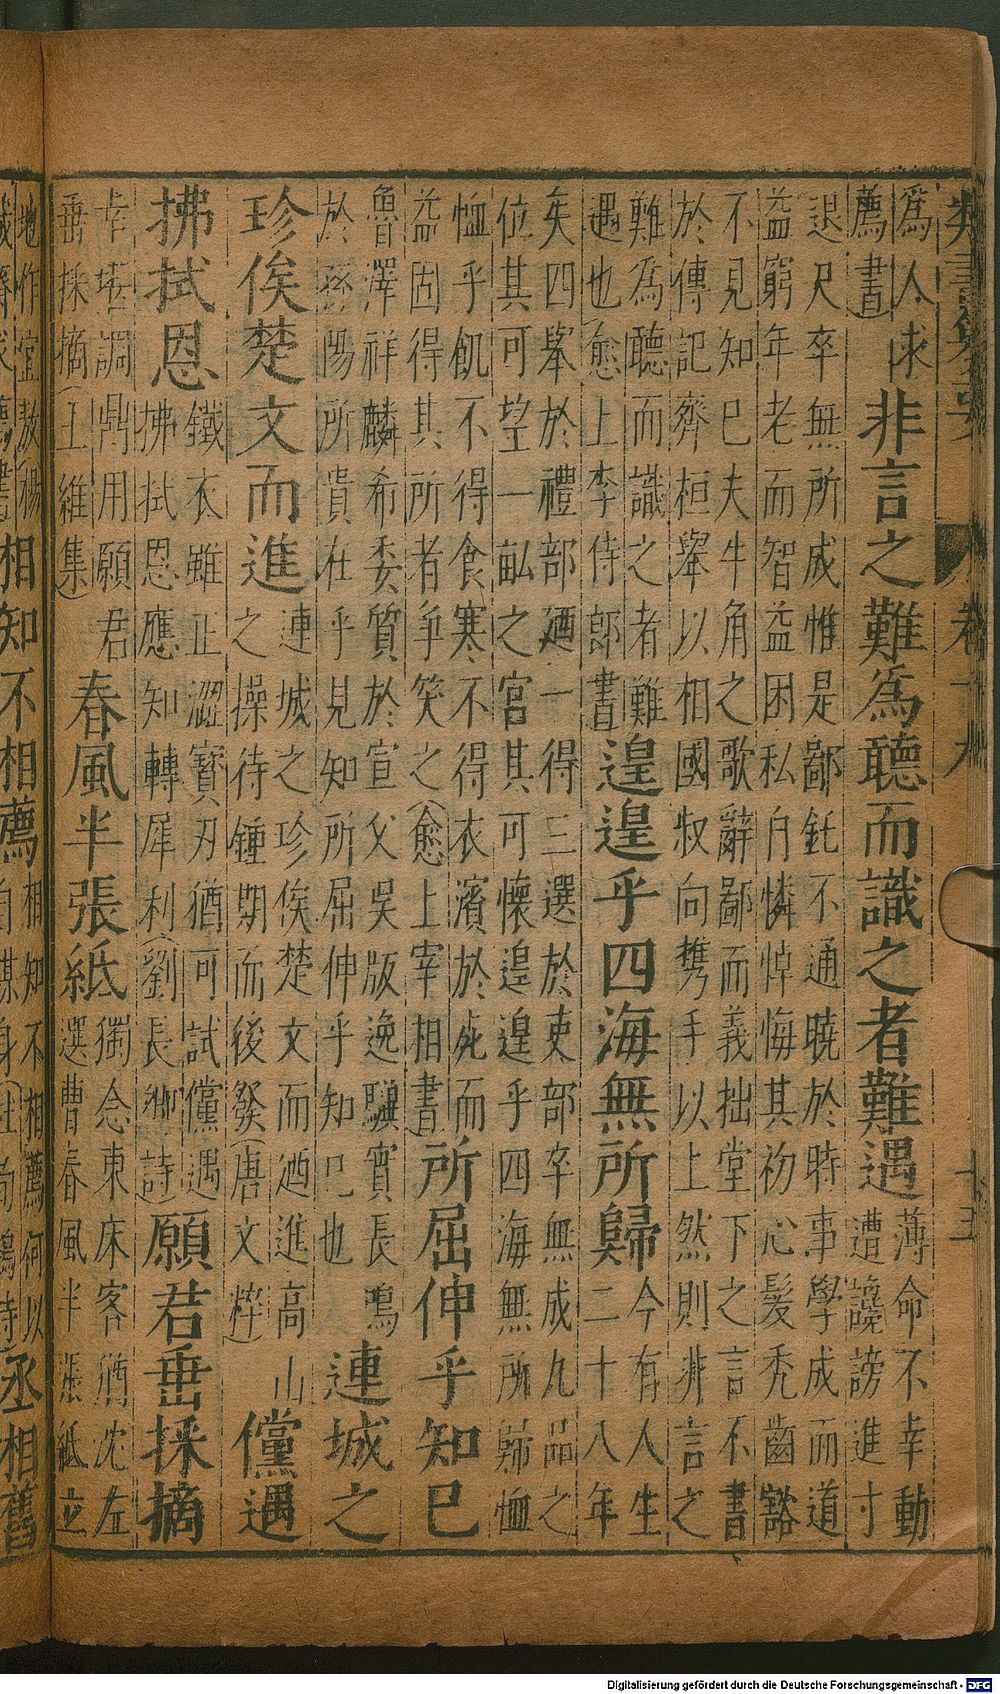 類書纂要 卷十九 十五
為人求
薦書
非言之難為聽而識之者難遇
薄命不幸動
遭讒謗進寸
退尺卒無所成惟是鄙鈍不通曉於時事學成而道
益窮年老而智益困私自憐悼悔其初心髮禿齒豁
不見知己夫牛角之歌辭鄙而義拙堂下之言不書
於傳記齊桓舉以相國叔向攜手以上然則非言之
難為聽而識之者難
遇也愈上李侍郎書
遑遑乎四海無所歸
今有人生
二十八年
矣四舉於禮部廼一得三選於吏部卒無成九品之
位其可望一畝之宮其可懷遑遑乎四海無所歸恤
恤乎飢不得食寒不得衣濱於死而
益固得其所者爭笑之(愈上宰相書)
所屈伸乎知己
魯澤祥麟希委質於宣父吳版逸驥實長鳴
於孫陽所貴在乎見知所屈伸乎知己也
連城之
珍俟楚文而進
連城之珍俟楚文而廼進高山
之操待鍾期而後發(唐文粹)
儻遇
拂拭恩
鐵衣雖正澀寶刃猶可試儻遇
拂拭恩應知轉犀利(劉長卿詩)
願君垂採摘
幸堪調鼎用願君
垂採摘(王維集)
春風半張紙
獨念東床客猶沈左
選曹春風半張紙並
相知不相薦
相知不相薦何以
自謀身(杜荀鶴詩)
丞相舊
Digitalisierung gefördert durch die Deutsche Forschungsgemeinschaft - DFG